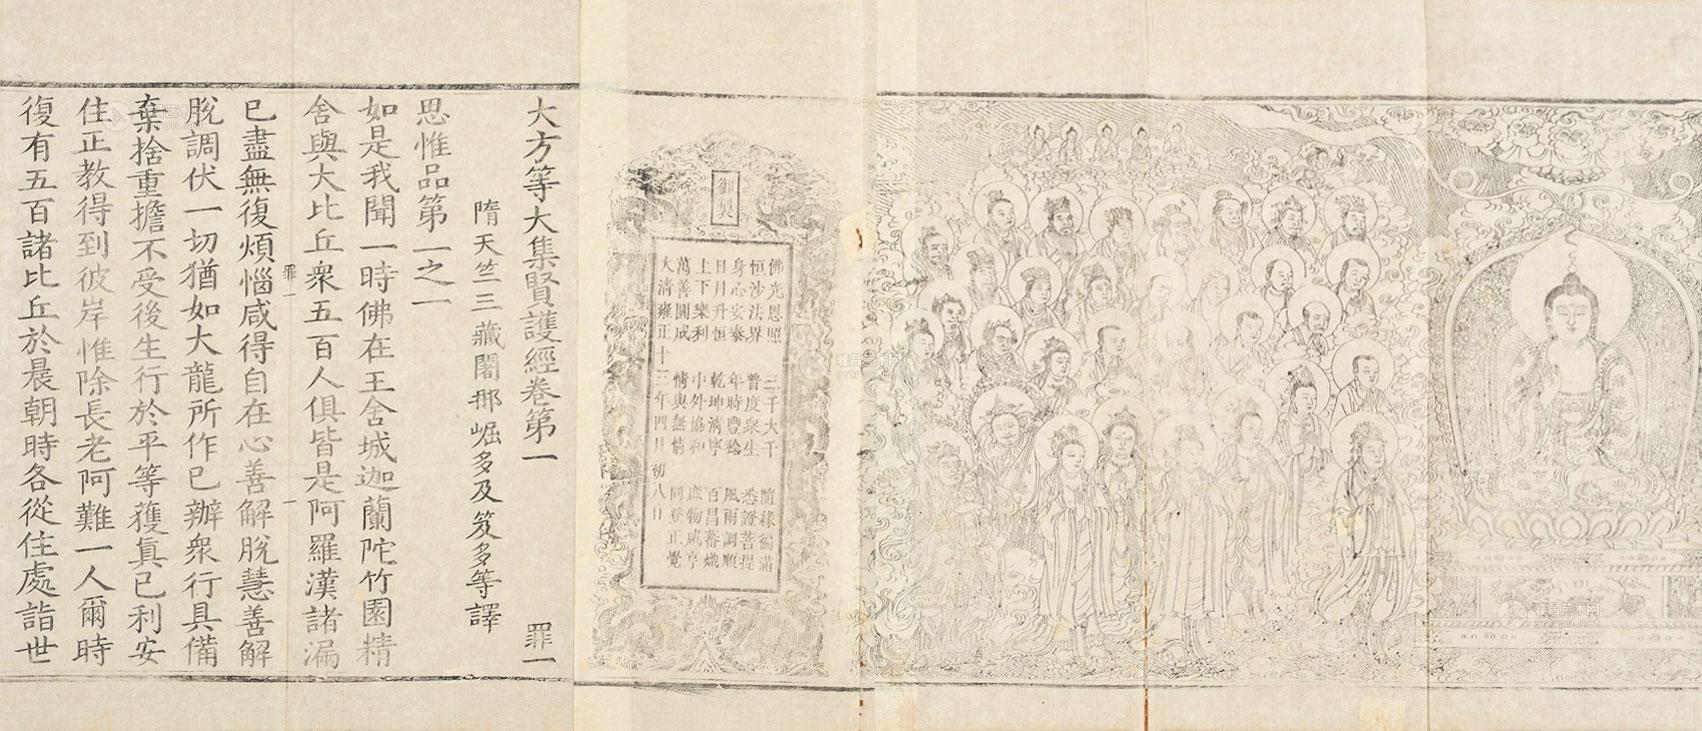 御製
佛光恩照　三千大千　隨緣徧滿
恒沙法界　普度衆生　悉證菩提
身心安泰　年時豐稔　風雨調順
日月升恒　乾坤清寧　百昌蕃熾
上下樂利　中外協和　庶物咸亨
萬善圓成　情與無情　同登正覺
大清雍正十三年四月初八日
大方等大集賢護經卷第一　罪一
隋天竺三藏闍那崛多及笈多等譯
思惟品第一之一
如是我聞一時佛在王舍城迦蘭陀竹園精
舍與大比丘衆五百人俱皆是阿羅漢諸漏
罪一　一
已盡無復煩惱咸得自在心善解脫慧善解
脫調伏一切猶如大龍所作已辦衆行具備
棄捨重擔不受後生行於平等獲真己利安
住正教得到彼岸惟除長老阿難一人爾時
復有五百諸比丘於晨朝時各從住處詣世